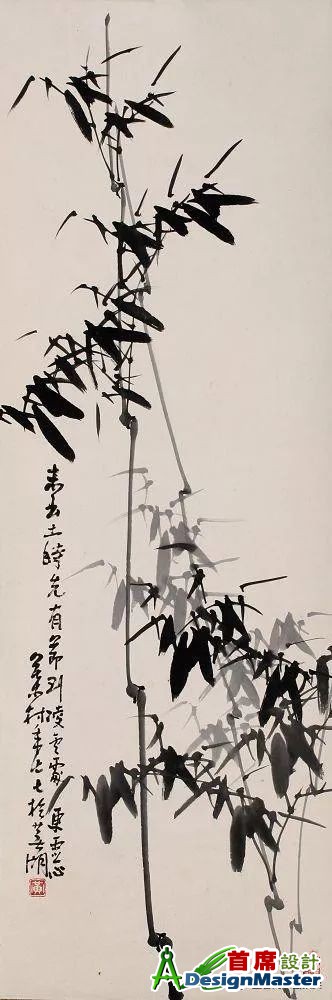 未出土時先有節到凌雲處更心
村於蕪湖
首席設計
DesignMaster